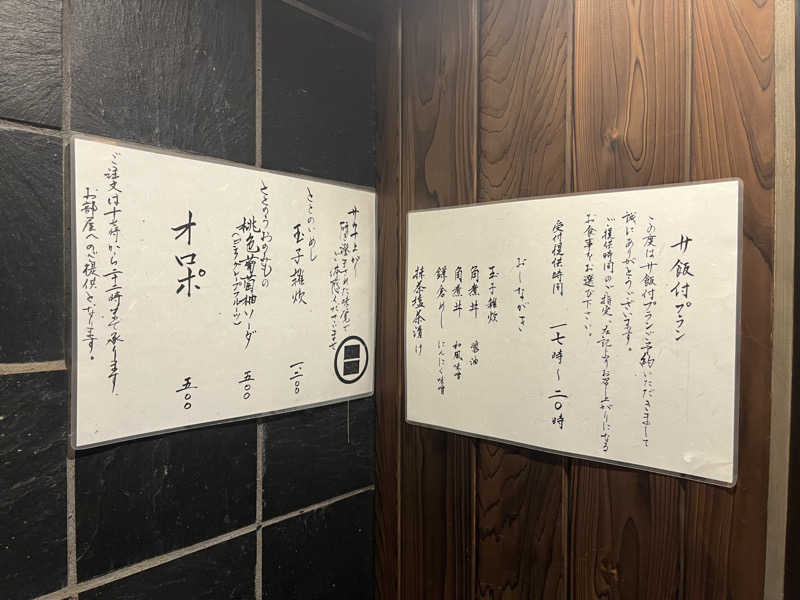 サ飯付プラン
この度はサ飯付プランご予約いただきまして
誠にありがとうございます。
ご提供時間のご指定、左記よりお召し上がりになる
お食事をお選び下さい。
受付提供時間 一七時〜二〇時
おしながき
玉子雑炊
角煮丼 醤油
角煮丼 和風味噌
鎌倉めし にんにく味噌
抹茶塩茶漬け
サ上がり
研ぎ澄まされた味覚で
ととのいめし
玉子雑炊 一二〇〇
ととのうおのみもの
桃色葡萄柚ソーダ 五〇〇
(ピンクグレープフルーツ)
オロポ 五〇〇
ご注文は十七時から二十二時まで承ります。
お部屋へのご提供となります。